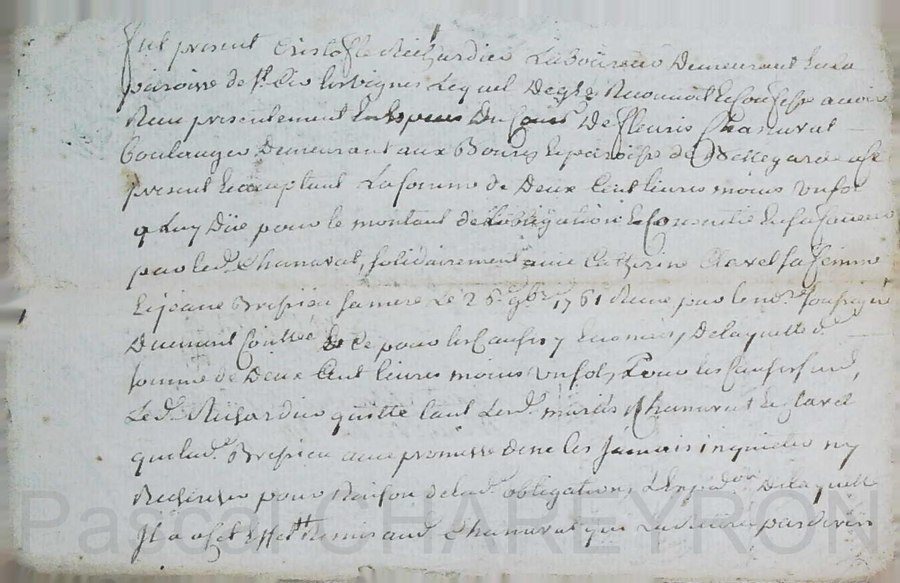 fut present Cristofle Richardier Laboureur Demeurant en la
paroisse de st Cir les vignes Lequel De gré Reconnoit et confesse avoir
Receu presentement Du Sieur De fleuris Chanavat
boulanger Demeurant aux Bourg et paroisse de Bellegarde icy
present et acceptant La somme de Deux Cent livres moins un sol
a Luy Düe pour le montant de l'obligation Consentie en sa faveur
par led. Chanavat, solidairement avec Catherine Clavel sa femme
et jeane Bressieu sa mere Le 25 9bre 1761 Receue par le nore soussigné
Duement Controllé et ce pour les Causes y enoncées De laquelle de
somme de Deux Cent livres moins un sol, Pour les causes sud.
Le d. Richardier quitte tant Lesd. mariés Chanavat et Clavel
que lad. Bressieu avec promesse de ne les Jamais inquieter ny
Rechercher pour Raison de lad. obligation, L'expedon De laquelle
Il a a cet effett Remis aud. Chanavat par devers
Pascal CHAREYRON